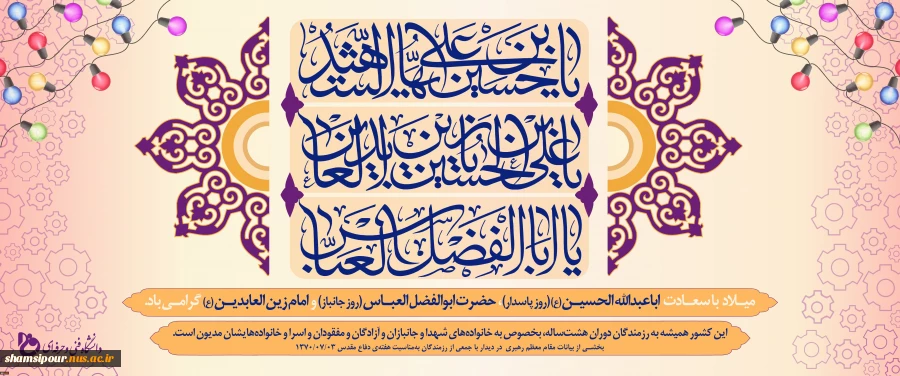 یا حسین بن علی ایها الشهید
یا علی بن الحسین یا زین العابدین
یا اباالفضل العباس
میلاد با سعادت اباعبدالله الحسین (ع) (روز پاسدار) حضرت ابوالفضل العباس (روز جانباز) و امام زین العابدین (ع) گرامی باد.
این کشور همیشه به رزمندگان دوران هشت‌ساله، بخصوص به خانواده‌های شهدا و جانبازان و آزادگان و مفقودان و اسرا و خانواده‌هایشان مدیون است.
بخشی از بیانات مقام معظم رهبری در دیدار با جمعی از رزمندگان به‌مناسبت هفته‌ی دفاع مقدس ۱۳۷۰/۰۷/۰۳
دانشگاه فنی و حرفه‌ای
shamsipour.nus.ac.ir